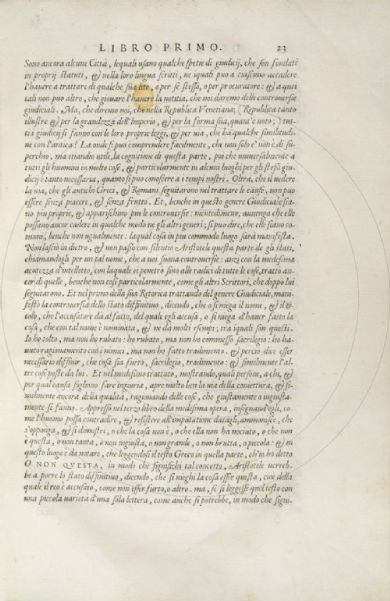 LIBRO PRIMO. 23
Sono ancora alcune Città, lequali usano qualche spetie di giudicij, che son fondati
in proprij statuti, &) nella loro lingua scritti, ne iquali puo a ciascuno accadere
l'havere a trattare di qualche sua lite, o per se stesso, o per procuratore: &) a questi
tali non puo altro, che giovare l'havere la notitia, che noi daremo delle controversie
giudiciali. Ma, che diremo noi, che nella Republica Venetiana; Republica tanto
illustre &) per la grandezza dell'Imperio, &) per la forma sua, quant'è noto; tut-
ti i giudicij si fanno con le loro proprie leggi, &) per via, che ha qualche similitudi-
ne con l'antica? La onde si può comprendere facilmente, che non solo è non è di su-
perchio, ma etiandio utile, la cognitione di questa parte, poi che universalmente a
tutti gli huomini in molte cose, &) particolarmente in alcuni luoghi per gli stessi giu-
dicij: tanto necessaria, quanto si può conoscere a i tempi nostri. Oltra, che il vedere
la via, che gli antichi Greci, &) Romani seguitarono nel trattare le cause, non può
essere senza piacere, &) senza frutto. Et, benche in questo genere Giudiciale sia-
no più proprie, &) apparischino più le controversie: nientedimeno, avvenga che elle
possano ancor cadere in qualche modo ne gli altri generi; si può dire, che elle siano co-
muni, benche non ugualmente: laqual cosa in più commodo luogo sarà manifesta.
Non lasciò in dietro, &) non passò con silentio Aristotele questa parte de gli stati,
chiamandogli per un tal nome, che a noi suona controversie: anzi con la medesima
acutezza d'intelletto, con laquale ei penetrò sino alle radici di tutte le cose, trattò an-
cor di quelle, benche non così particolarmente, come gli altri Scrittori, che doppo lui
seguitarono. Et nel primo della sua Retorica trattando del genere Giudiciale, mani-
festò la controversia dello stato diffinitivo, dicendo, che o si niega il nome, &) il ti-
tolo, che l'accusatore dà al fatto, del quale egli accusa, o si niega d'haver fatto la
cosa, che con tal nome è nominata, &) ne dà molti essempi; tra iquali son questi.
Io ho tolto, ma non ho rubato: ho rubato, ma non ho commesso sacrilegio: ho ha-
vuto ragionamento con i nimici, ma non ho fatto tradimento. &) perciò dice esser
necessario diffinir, che cosa sia furto, sacrilegio, tradimento: &) similmente l'al-
tre cose poste da lui. Et nel medesimo trattato, mostrando, quali persone, a chi, &)
per qual causa soglino fare ingiuria, apre molto ben la via della coniettura, &) si-
milmente ancora della qualità, ragionando delle cose, che giustamente o ingiusta-
mente si fanno. Appresso nel terzo libro della medesima opera, insegnando egli, co-
me l'huomo possa contradire, &) resistere all'imputatione datagli, ammonisce, che
s'opponga, &) si dimostri, o che la cosa non è, o che ella non ha nociuto, o che non
è questa, o non tanta, o non ingiusta, o non grande, o non brutta, o picciola: &) in
questo luogo è da notare, che leggendosi il testo Greco in quella parte, ch'io ho detto
O NON QUESTA, in modi che significhi tal concetto, Aristotele verreb-
be a porre lo stato diffinitivo, dicendo, che si nieghi la cosa esser questa, cioè della
quale il reo è accusato, come non esser furto, o altro. ma, se si leggesse quel testo con
una picciola varietà d'una sola lettera, come anche si potrebbe, in modo che signi-